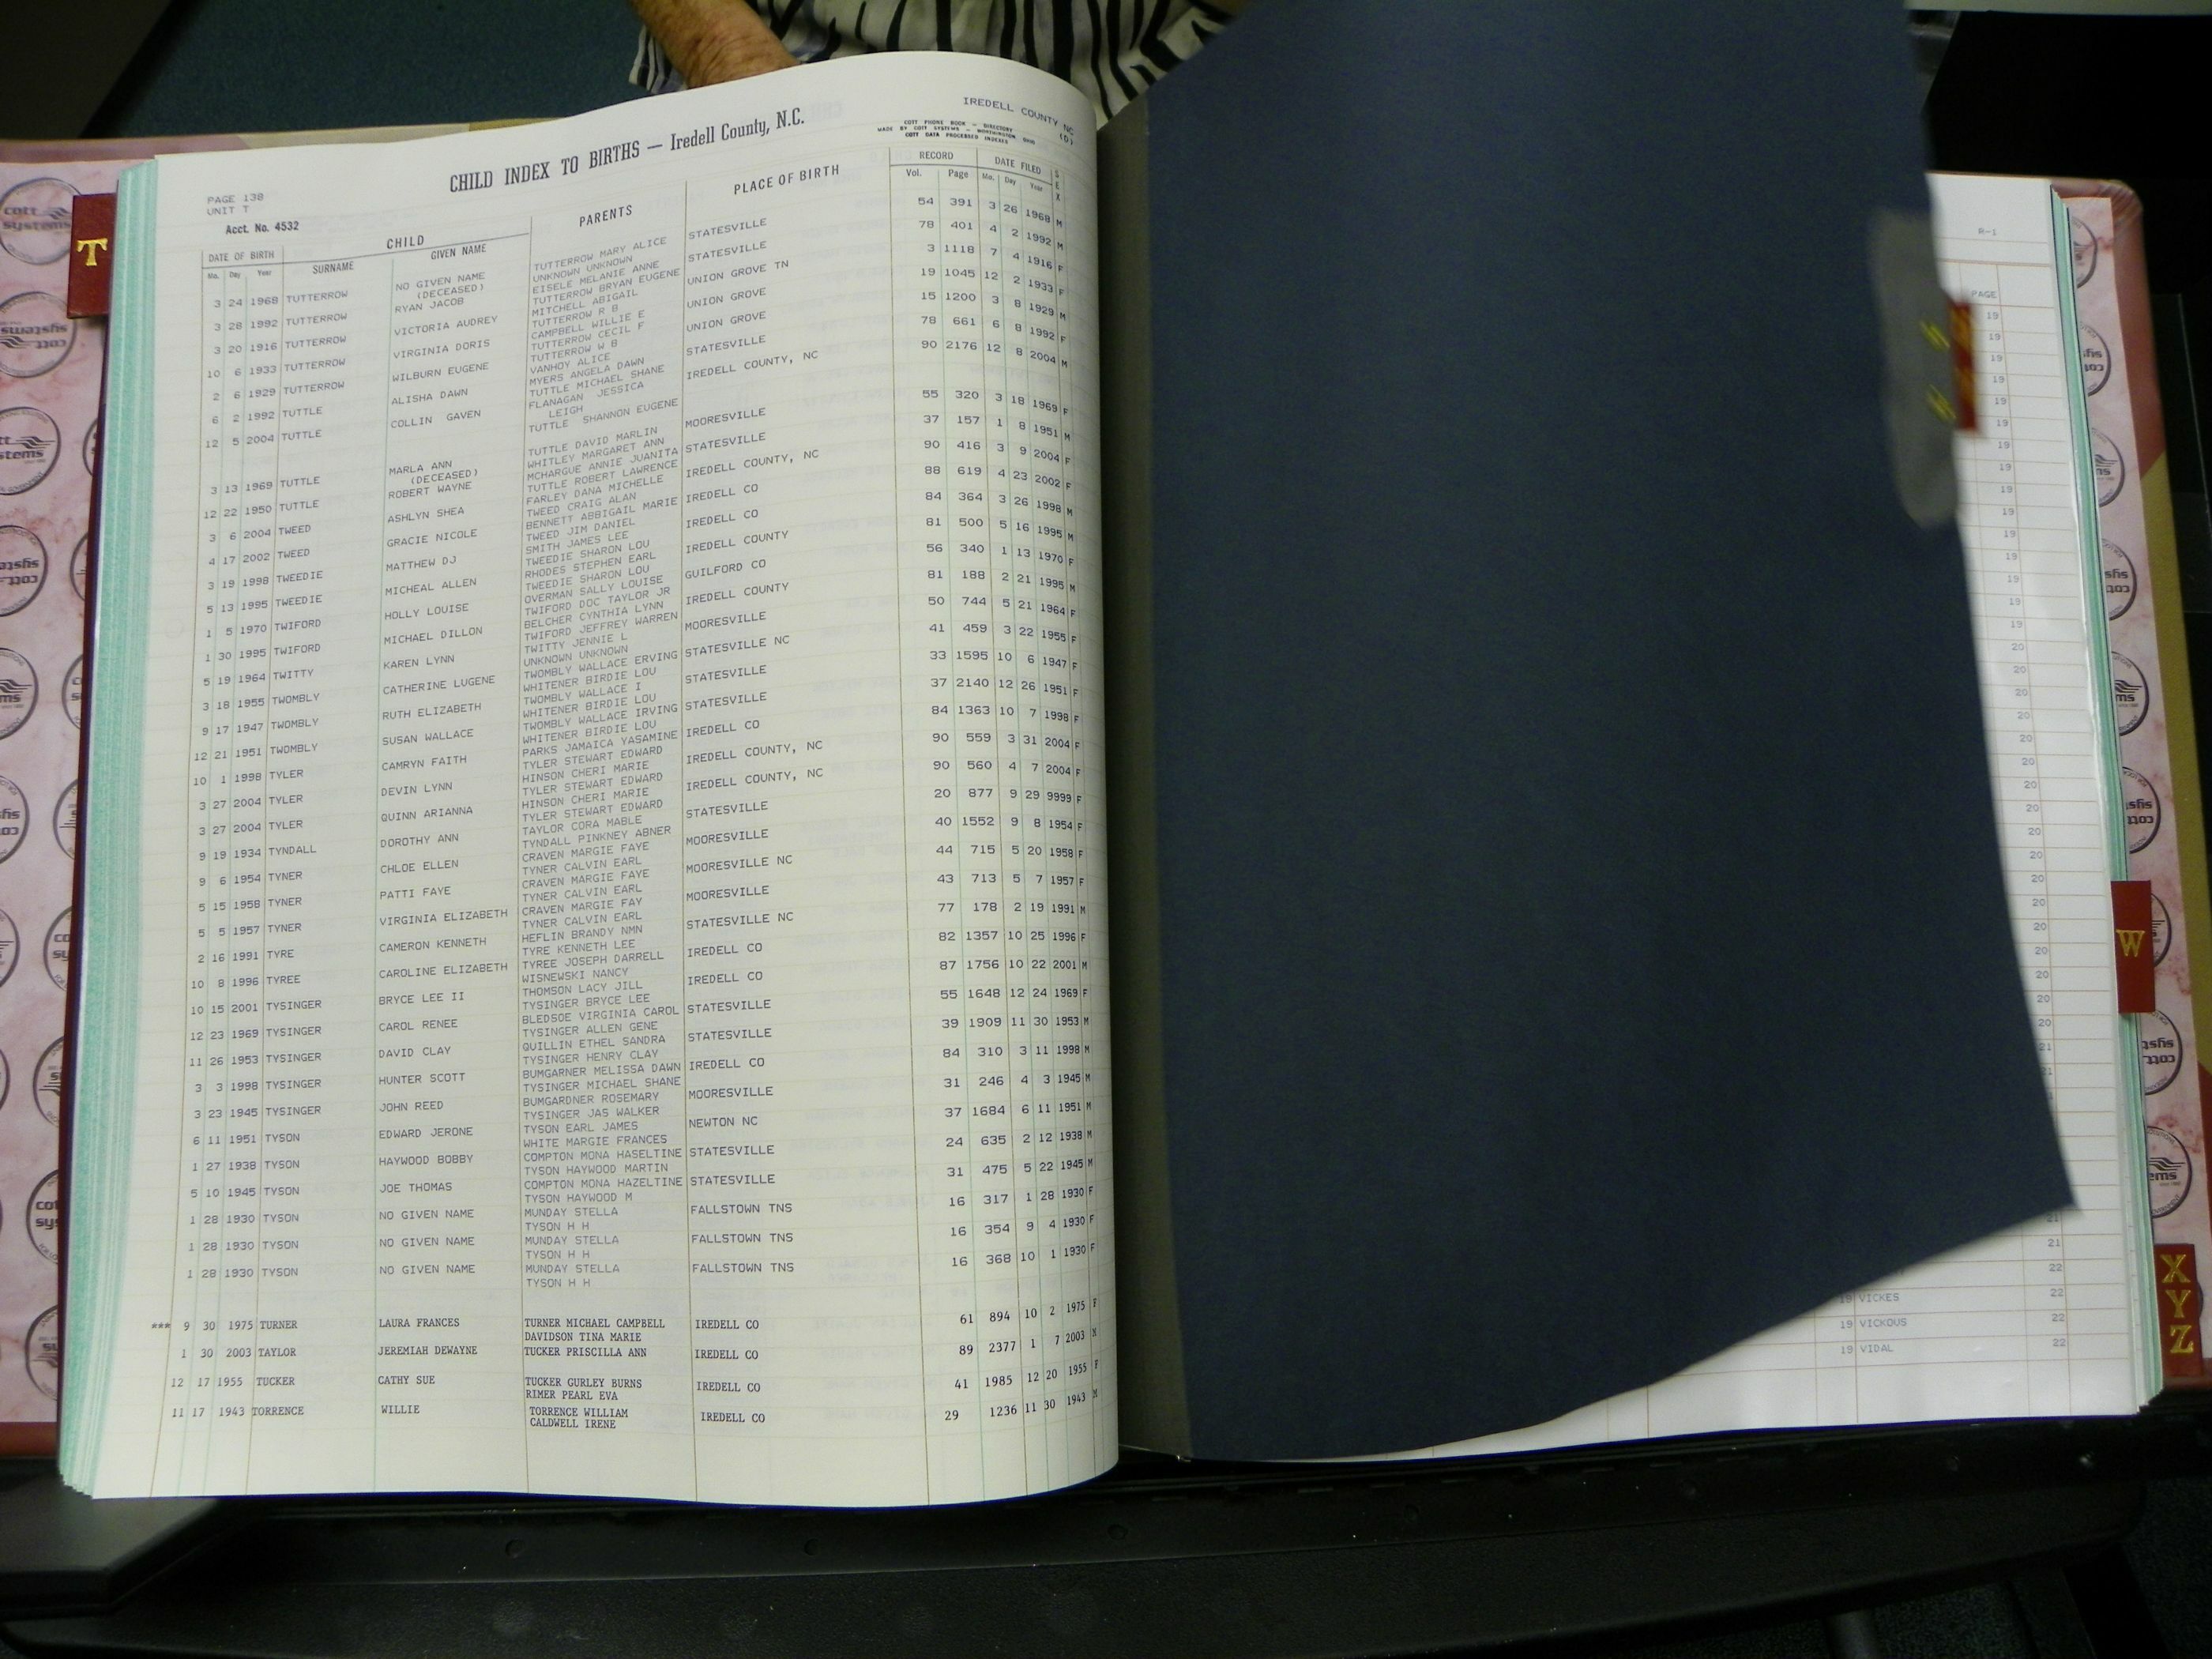 IREDELL COUNTY NC
(D)
COTT PHONE BOOK — DIRECTORY
MADE BY COTT SYSTEMS — WORTHINGTON, OHIO
COTT DATA PROCESSED INDEXES
CHILD INDEX TO BIRTHS — Iredell County, N.C.
PAGE 138
UNIT T
Acct. No. 4532
DATE OF BIRTH CHILD PARENTS PLACE OF BIRTH RECORD DATE FILED SEX
Mo. Day Year SURNAME GIVEN NAME Vol. Page Mo. Day Year
3 24 1968 TUTTERROW NO GIVEN NAME TUTTERROW MARY ALICE STATESVILLE 54 391 3 26 1968 M
(DECEASED) UNKNOWN UNKNOWN
3 28 1992 TUTTERROW RYAN JACOB EISELE MELANIE ANNE STATESVILLE 78 401 4 2 1992 M
TUTTERROW BRYAN EUGENE
3 20 1916 TUTTERROW VICTORIA AUDREY MITCHELL ABIGAIL UNION GROVE TN 3 1118 7 4 1916 F
TUTTERROW R B
10 6 1933 TUTTERROW VIRGINIA DORIS CAMPBELL WILLIE E UNION GROVE 19 1045 12 2 1933 F
TUTTERROW CECIL F
2 6 1929 TUTTERROW WILBURN EUGENE TUTTERROW W B UNION GROVE 15 1200 3 8 1929 M
VANHOY ALICE
6 2 1992 TUTTLE ALISHA DAWN MYERS ANGELA DAWN STATESVILLE 78 661 6 8 1992 F
TUTTLE MICHAEL SHANE
12 5 2004 TUTTLE COLLIN GAVEN FLANAGAN JESSICA IREDELL COUNTY, NC 90 2176 12 8 2004 M
LEIGH
TUTTLE SHANNON EUGENE
3 13 1969 TUTTLE MARLA ANN TUTTLE DAVID MARLIN MOORESVILLE 55 320 3 18 1969 F
(DECEASED) WHITLEY MARGARET ANN
12 22 1950 TUTTLE ROBERT WAYNE MCHARGUE ANNIE JUANITA STATESVILLE 37 157 1 8 1951 M
TUTTLE ROBERT LAWRENCE
3 6 2004 TWEED ASHLYN SHEA FARLEY DANA MICHELLE IREDELL COUNTY, NC 90 416 3 9 2004 F
TWEED CRAIG ALAN
4 17 2002 TWEED GRACIE NICOLE BENNETT ABBIGAIL MARIE IREDELL CO 88 619 4 23 2002 F
TWEED JIM DANIEL
3 19 1998 TWEEDIE MATTHEW DJ SMITH JAMES LEE IREDELL CO 84 364 3 26 1998 M
TWEEDIE SHARON LOU
5 13 1995 TWEEDIE MICHEAL ALLEN RHODES STEPHEN EARL IREDELL COUNTY 81 500 5 16 1995 M
TWEEDIE SHARON LOU
1 5 1970 TWIFORD HOLLY LOUISE OVERMAN SALLY LOUISE GUILFORD CO 56 340 1 13 1970 F
TWIFORD DOC TAYLOR JR
1 30 1995 TWIFORD MICHAEL DILLON BELCHER CYNTHIA LYNN IREDELL COUNTY 81 188 2 21 1995 M
TWIFORD JEFFREY WARREN
5 19 1964 TWITTY KAREN LYNN TWITTY JENNIE L MOORESVILLE 50 744 5 21 1964 F
UNKNOWN UNKNOWN
3 18 1955 TWOMBLY CATHERINE LUGENE TWOMBLY WALLACE ERVING STATESVILLE NC 41 459 3 22 1955 F
WHITENER BIRDIE LOU
9 17 1947 TWOMBLY RUTH ELIZABETH TWOMBLY WALLACE I STATESVILLE 33 1595 10 6 1947 F
WHITENER BIRDIE LOU
12 21 1951 TWOMBLY SUSAN WALLACE TWOMBLY WALLACE IRVING STATESVILLE 37 2140 12 26 1951 F
WHITENER BIRDIE LOU
10 1 1998 TYLER CAMRYN FAITH PARKS JAMAICA YASAMINE IREDELL CO 84 1363 10 7 1998 F
TYLER STEWART EDWARD
3 27 2004 TYLER DEVIN LYNN HINSON CHERI MARIE IREDELL COUNTY, NC 90 559 3 31 2004 F
TYLER STEWART EDWARD
3 27 2004 TYLER QUINN ARIANNA HINSON CHERI MARIE IREDELL COUNTY, NC 90 560 4 7 2004 F
TYLER STEWART EDWARD
9 19 1934 TYNDALL DOROTHY ANN TAYLOR CORA MABLE STATESVILLE 20 877 9 29 9999 F
TYNDALL PINKNEY ABNER
9 6 1954 TYNER CHLOE ELLEN CRAVEN MARGIE FAYE MOORESVILLE 40 1552 9 8 1954 F
TYNER CALVIN EARL
5 15 1958 TYNER PATTI FAYE CRAVEN MARGIE FAYE MOORESVILLE NC 44 715 5 20 1958 F
TYNER CALVIN EARL
5 5 1957 TYNER VIRGINIA ELIZABETH CRAVEN MARGIE FAY MOORESVILLE 43 713 5 7 1957 F
TYNER CALVIN EARL
2 16 1991 TYRE CAMERON KENNETH HEFLIN BRANDY NMN STATESVILLE NC 77 178 2 19 1991 M
TYRE KENNETH LEE
10 8 1996 TYREE CAROLINE ELIZABETH TYREE JOSEPH DARRELL IREDELL CO 82 1357 10 25 1996 F
WISNEWSKI NANCY
10 15 2001 TYSINGER BRYCE LEE II THOMSON LACY JILL IREDELL CO 87 1756 10 22 2001 M
TYSINGER BRYCE LEE
12 23 1969 TYSINGER CAROL RENEE BLEDSOE VIRGINIA CAROL STATESVILLE 55 1648 12 24 1969 F
TYSINGER ALLEN GENE
11 26 1953 TYSINGER DAVID CLAY QUILLIN ETHEL SANDRA STATESVILLE 39 1909 11 30 1953 M
TYSINGER HENRY CLAY
3 3 1998 TYSINGER HUNTER SCOTT BUMGARNER MELISSA DAWN IREDELL CO 84 310 3 11 1998 M
TYSINGER MICHAEL SHANE
3 23 1945 TYSINGER JOHN REED BUMGARDNER ROSEMARY MOORESVILLE 31 246 4 3 1945 M
TYSINGER JAS WALKER
6 11 1951 TYSON EDWARD JERONE TYSON EARL JAMES NEWTON NC 37 1684 6 11 1951 M
WHITE MARGIE FRANCES
1 27 1938 TYSON HAYWOOD BOBBY COMPTON MONA HASELTINE STATESVILLE 24 635 2 12 1938 M
TYSON HAYWOOD MARTIN
5 10 1945 TYSON JOE THOMAS COMPTON MONA HAZELTINE STATESVILLE 31 475 5 22 1945 M
TYSON HAYWOOD M
1 28 1930 TYSON NO GIVEN NAME MUNDAY STELLA FALLSTOWN TNS 16 317 1 28 1930 F
TYSON H H
1 28 1930 TYSON NO GIVEN NAME MUNDAY STELLA FALLSTOWN TNS 16 354 9 4 1930 F
TYSON H H
1 28 1930 TYSON NO GIVEN NAME MUNDAY STELLA FALLSTOWN TNS 16 368 10 1 1930 F
TYSON H H
*** 9 30 1975 TURNER LAURA FRANCES TURNER MICHAEL CAMPBELL IREDELL CO 61 894 10 2 1975 F
DAVIDSON TINA MARIE
1 30 2003 TAYLOR JEREMIAH DEWAYNE TUCKER PRISCILLA ANN IREDELL CO 89 2377 1 7 2003 M
12 17 1955 TUCKER CATHY SUE TUCKER GURLEY BURNS IREDELL CO 41 1985 12 20 1955 F
RIMER PEARL EVA
11 17 1943 TORRENCE WILLIE TORRENCE WILLIAM IREDELL CO 29 1236 11 30 1943 M
CALDWELL IRENE
T
W
X
Y
Z
R-1
PAGE
19 VICKES 22
19 VICKOUS 22
19 VIDAL 22
cott
systems